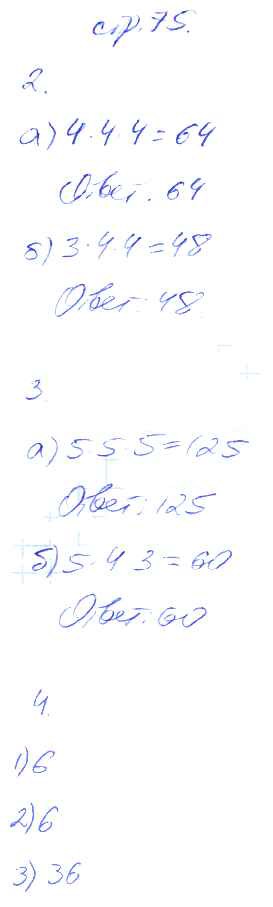 стр. 75.
2.
а) 4·4·4=64
Ответ: 64
б) 3·4·4=48
Ответ: 48
3.
а) 5·5·5=125
Ответ: 125
б) 5·4·3=60
Ответ: 60
4.
1) 6
2) 6
3) 36